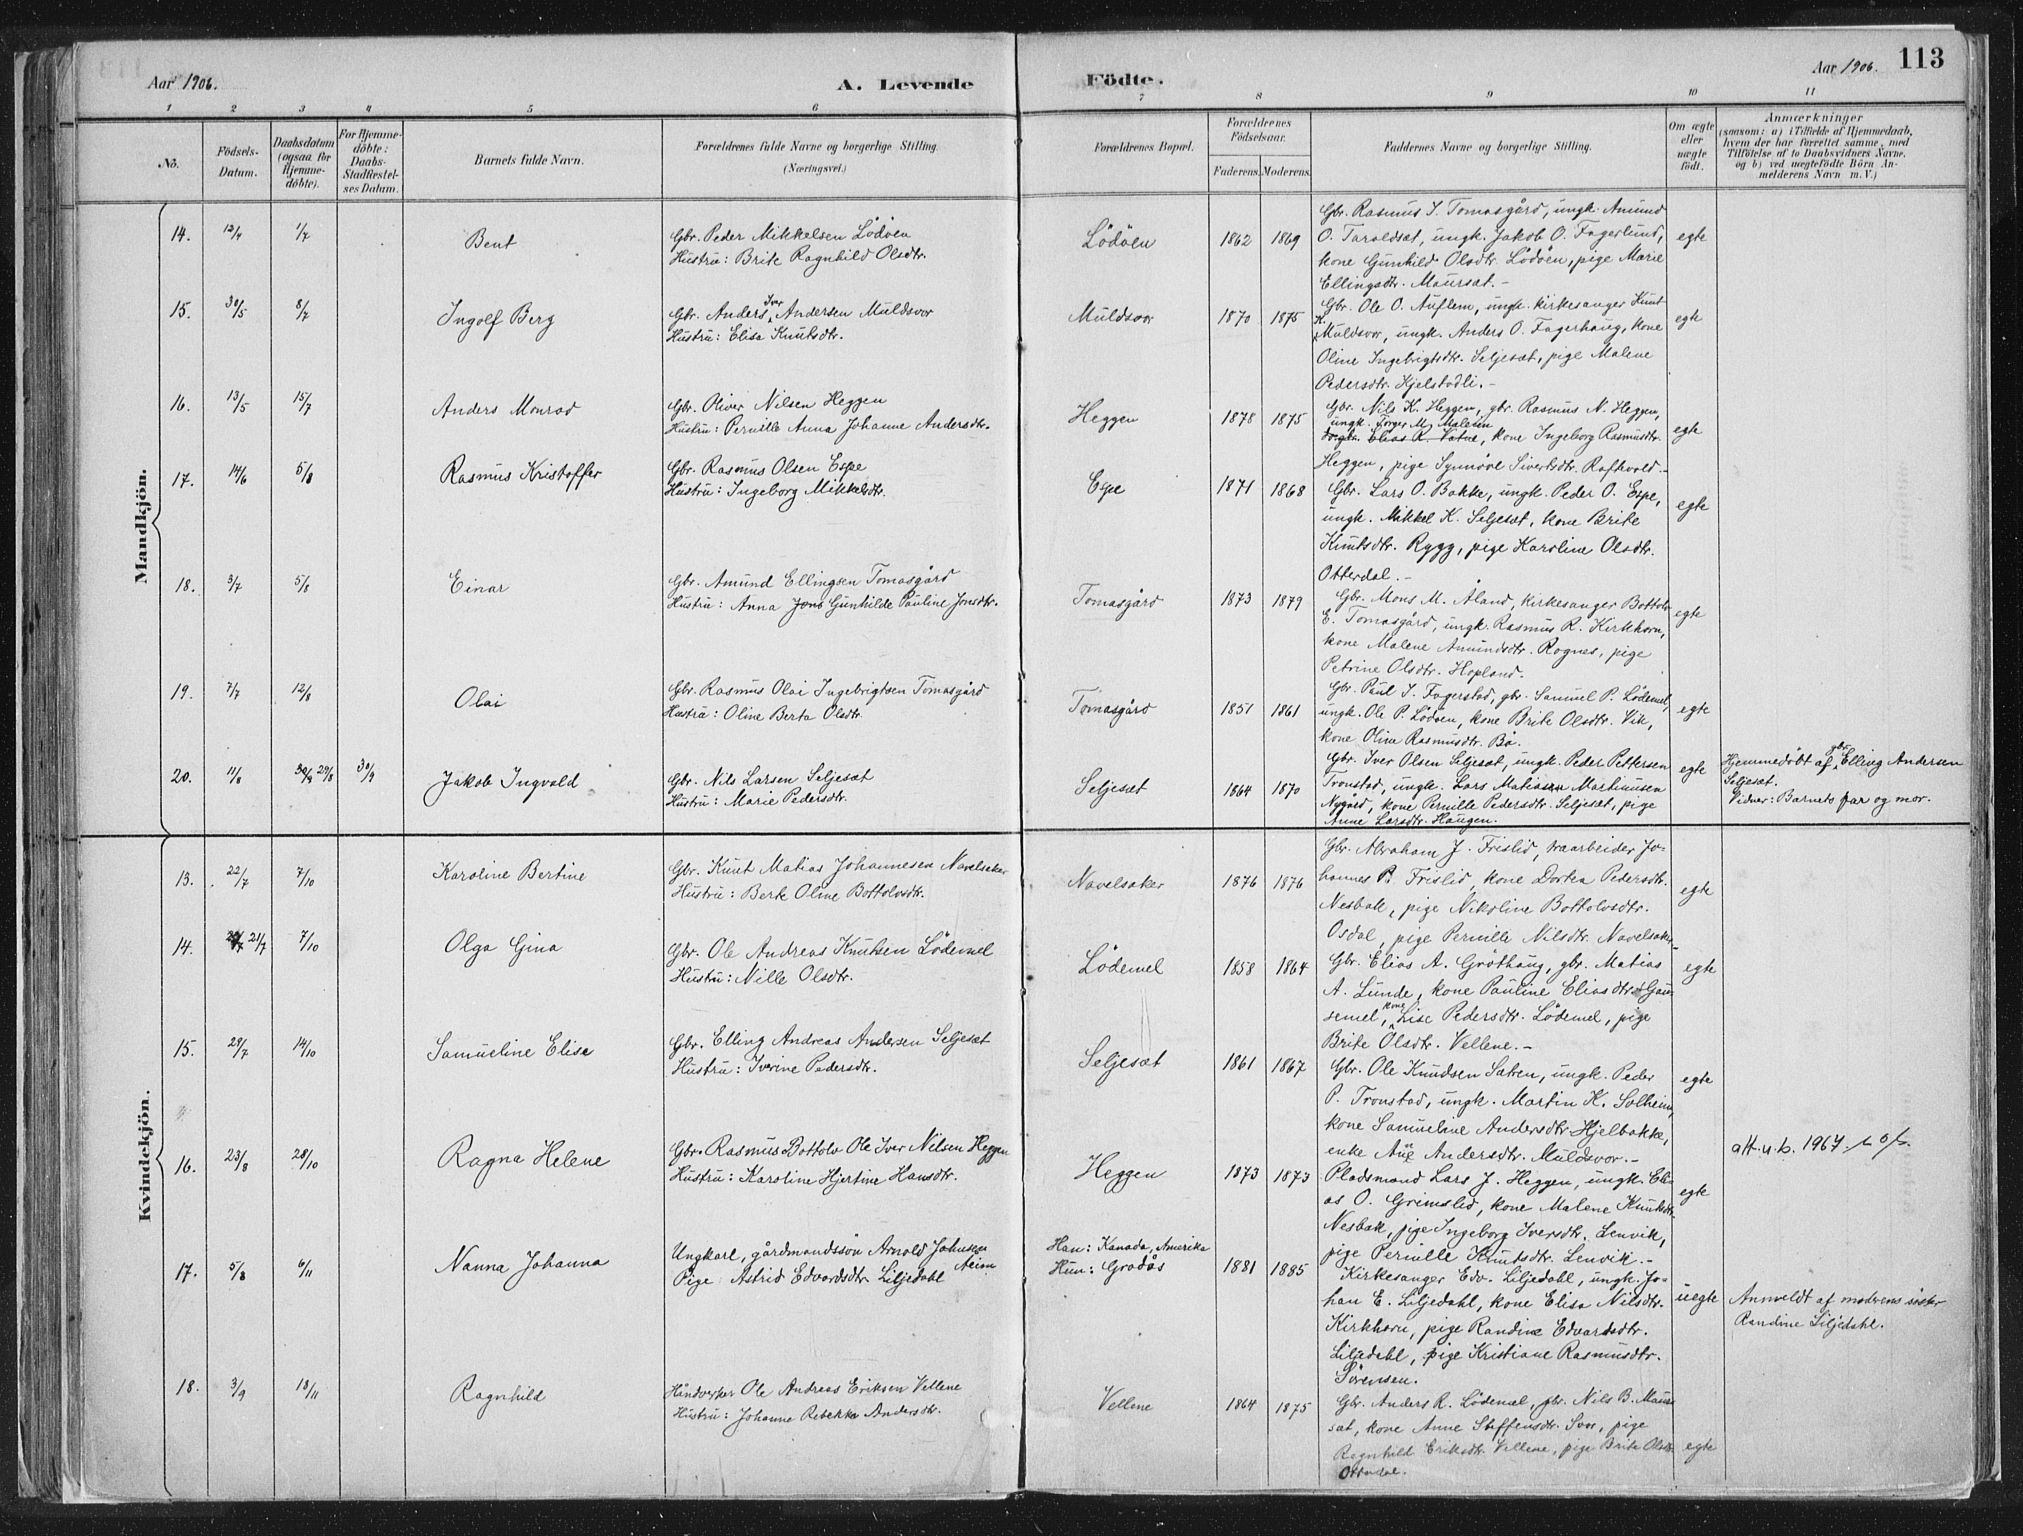 Aar 1906.
A. Levende
Födte.
Aar 1906.
113
1 2 3 4 5 6 7 8 9 10 11
No.
Födsels-
Datum.
Daabsdatum
(ogsaa for
Hjemme-
döbte).
For Hjemme-
döbte:
Daabs-
Stadfæstel-
ses Datum.
Barnets fulde Navn.
Forældrenes fulde Navne og borgerlige Stilling.
(Næringsvei.)
Forældrenes Bopæl.
Forældrenes
Födselsaar.
Faderens. Moderens.
Faddernes Navne og borgerlige Stilling.
Om ægte
eller
uægte
födt.
Anmærkninger
(saasom: a) i Tilfælde af Hjemmedaab,
hvem der har forrettet samme, med
Tilföielse af to Daabsvidners Navne,
og b) ved uægtefödte Börn An-
melderens Navn m. V.)
Mandkjön.
14. 12/4 1/7 Bent
Gbr. Peder Mikkelsen Lödöen
Hustru: Brite Ragnhild Olsdtr.
Lödöen 1862 1869
Gbr. Rasmus J. Tomasgård, ungk. Amund
O. Taraldsæt, ungk. Jakob O. Fagerlund,
kone Gunhild Olsdtr. Lödöen, pige Marie
Ellingsdtr. Maursæt.-
egte
15. 30/5 8/7 Ingolf Berg
Gbr. Anders Iver Andersen Muldsvor
Hustru: Elisa Knutsdtr.
Muldsvor 1870 1875
Gbr. Ole O. Auflem, ungk. kirkesanger Knut
K. Muldsvor, ungk. Anders O. Fagerhaug, kone
Oline Ingebrigtsdtr. Seljesæt, pige Malene
Pedersdtr. Hjelstadli.-
egte
16. 13/5 15/7 Anders Monrad
Gbr. Oliver Nilsen Heggen
Hustru: Pernille Anna Johanne Andersdtr.
Heggen 1878 1875
Gbr. Nils K. Heggen, gbr. Rasmus N. Heggen,
ungk. Torger M. Maleien
Elias R. Vatne, kone Ingeborg Rasmusdtr.
Heggen, pige Synnöve Sivertsdtr. Raftevold.-
egte
17. 14/6 5/8 Rasmus Kristoffer
Gbr. Rasmus Olsen Espe
Hustru: Ingeborg Mikkelsdtr.
Espe 1871 1868
Gbr. Lars O. Bakke, ungk. Peder O. Espe,
ungk. Mikkel K. Seljesæt, kone Brite
Knutsdtr. Rygg, pige Karoline Olsdtr.
Otterdal.-
egte
18. 3/7 5/8 Einar
Gbr. Amund Ellingsen Tomasgård
Hustru: Anna Jons Gunhilde Pauline Jonsdtr.
Tomasgård 1873 1879
Gbr. Mons M. Åland, kirkesanger Bottolv
E. Tomasgård, ungk. Rasmus R. Kirkhorn,
kone Malene Amundsdtr. Rognes, pige
Petrine Olsdtr. Hopland.
egte
19. 7/7 12/8 Olai
Gbr. Rasmus Olai Ingebrigtsen Tomasgård
Hustru: Oline Berta Olsdtr.
Tomasgård 1851 1861
Gbr. Paul J. Fagerstad, gbr. Samuel P. Lödemel,
ungk. Ole P. Lödöen, kone Brite Olsdtr. Vik,
kone Oline Rasmusdtr. Bö.
egte
20. 11/8 30/9 29/8 30/9 Jakob Ingvald
Gbr. Nils Larsen Seljesæt
Hustru: Marie Pedersdtr.
Seljesæt 1864 1870
Gbr. Iver Olsen Seljesæt, ungk. Peder Pettersen
Tronstad, ungk. Lars Matiasen Martinusen
Nygård, kone Pernille Pedersdtr. Seljesæt, pige
Anne Larsdtr. Haugen.
egte
Hjemmedöbt af gbr. Elling Andersen
Seljesæt.
Vidner: Barnets far og mor.
Kvindekjön.
13. 22/7 7/10 Karoline Bertine
Gbr. Knut Matias Johannesen Navelsaker
Hustru: Berte Oline Bottolvsdtr.
Navelsaker 1876 1876
Gbr. Abraham J. Frislid, vaarbeider Jo-
hannes B. Frislid, kone Dortea Pedersdtr.
Nesbak, pige Nikoline Bottolvsdtr.
Osdal, pige Pernille Nilsdtr. Navelsaker.-
egte
14. 21/7 7/10 Olga Gina
Gbr. Ole Andreas Knutsen Lödemel
Hustru: Nille Olsdtr.
Lödemel 1858 1864
Gbr. Elias A. Gröthaug, gbr. Matias
A. Lunde, kone Pauline Eliasdtr. Gau-
semel, kone Lise Pedersdtr. Lödemel, pige
Brite Olsdtr. Vellene.-
egte
15. 29/7 14/10 Samueline Elisa
Gbr. Elling Andreas Andersen Seljesæt
Hustru: Iverine Pedersdtr.
Seljesæt 1861 1867
Gbr. Ole Knudsen Sætren, ungk. Peder
P. Tronstad, ungk. Martin K. Solheim,
kone Samueline Andersdtr. Hjelbakke,
enke Andersdtr. Muldsvor.-
egte
16. 23/8 28/10 Ragna Helene
Gbr. Rasmus Bottolv Ole Iver Nilsen Heggen
Hustru: Karoline Hjertine Hansdtr.
Heggen 1873 1873
Pladsmand Lars J. Heggen, ungk. Eli-
as O. Grimslid, kone Malene Knutsdtr.
Nesbak, pige Ingeborg Iversdtr. Lenvik,
pige Pernille Knutsdtr. Lenvik.-
egte
att. u.b. 1967
17. 5/8 6/11 Nanna Johanna
Ungkarl, gårdmandssön Arnold Johnsen
Aeim
Pige Astrid Edvardsdtr. Liljedahl
Han: Kanada, Amerika
Hun: Grodås
1881 1885
Kirkesanger Edv. Liljedahl, ungk. Jo-
han E. Liljedahl, kone Elisa Nilsdtr.
Kirkhorn, pige Randine Edvardsdtr.
Liljedahl, pige Kristiane Rasmusdtr.
Sörensen.
uegte
Anmeldt af moderens söster
Randine Liljedahl.
18. 3/9 18/11 Ragnhild
Håndverker Ole Andreas Eriksen Vellene
Hustru: Johanne Rebekka Andersdtr.
Vellene 1864 1875
Gbr. Anders R. Lödemel, gbr. Nils B. Maur-
sæt, kone Anne Steffensdtr. Sva, pige
Ragnhild Eriksdtr. Vellene, pige Brite Olsdtr.
Otterdal.
egte